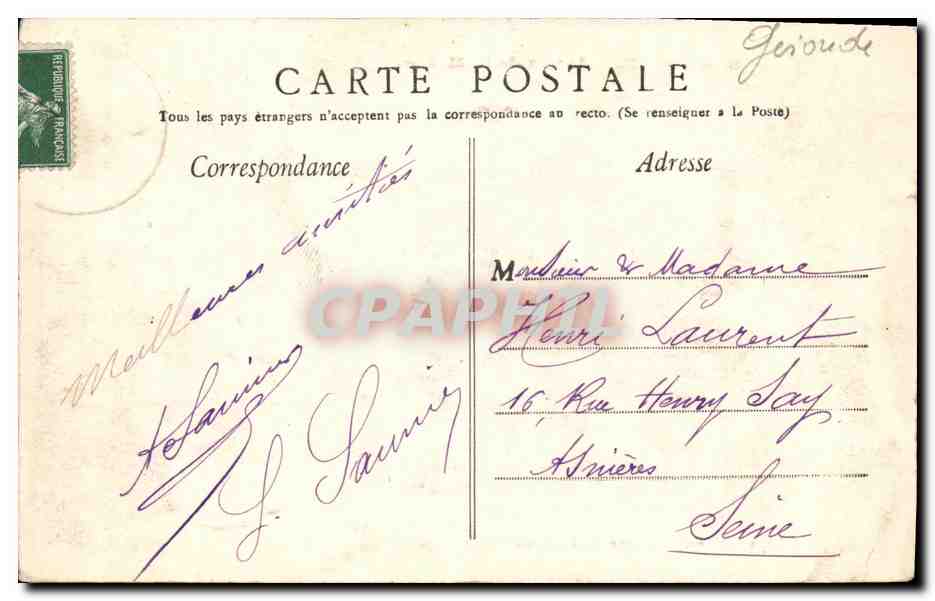 Gironde
REPUBLIQUE FRANCAISE
CARTE POSTALE
Tous les pays étrangers n'acceptent pas la correspondance au recto. (Se renseigner à la Poste)
Correspondance
Meilleures amitiés
Adresse
Monsieur & Madame
Henri Laurent
16, Rue Henry Say
Asnières
Seine
CPAPHIL